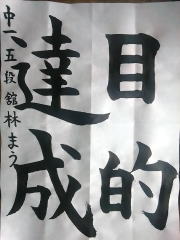 目的
達成
中一、五段 舘林まう